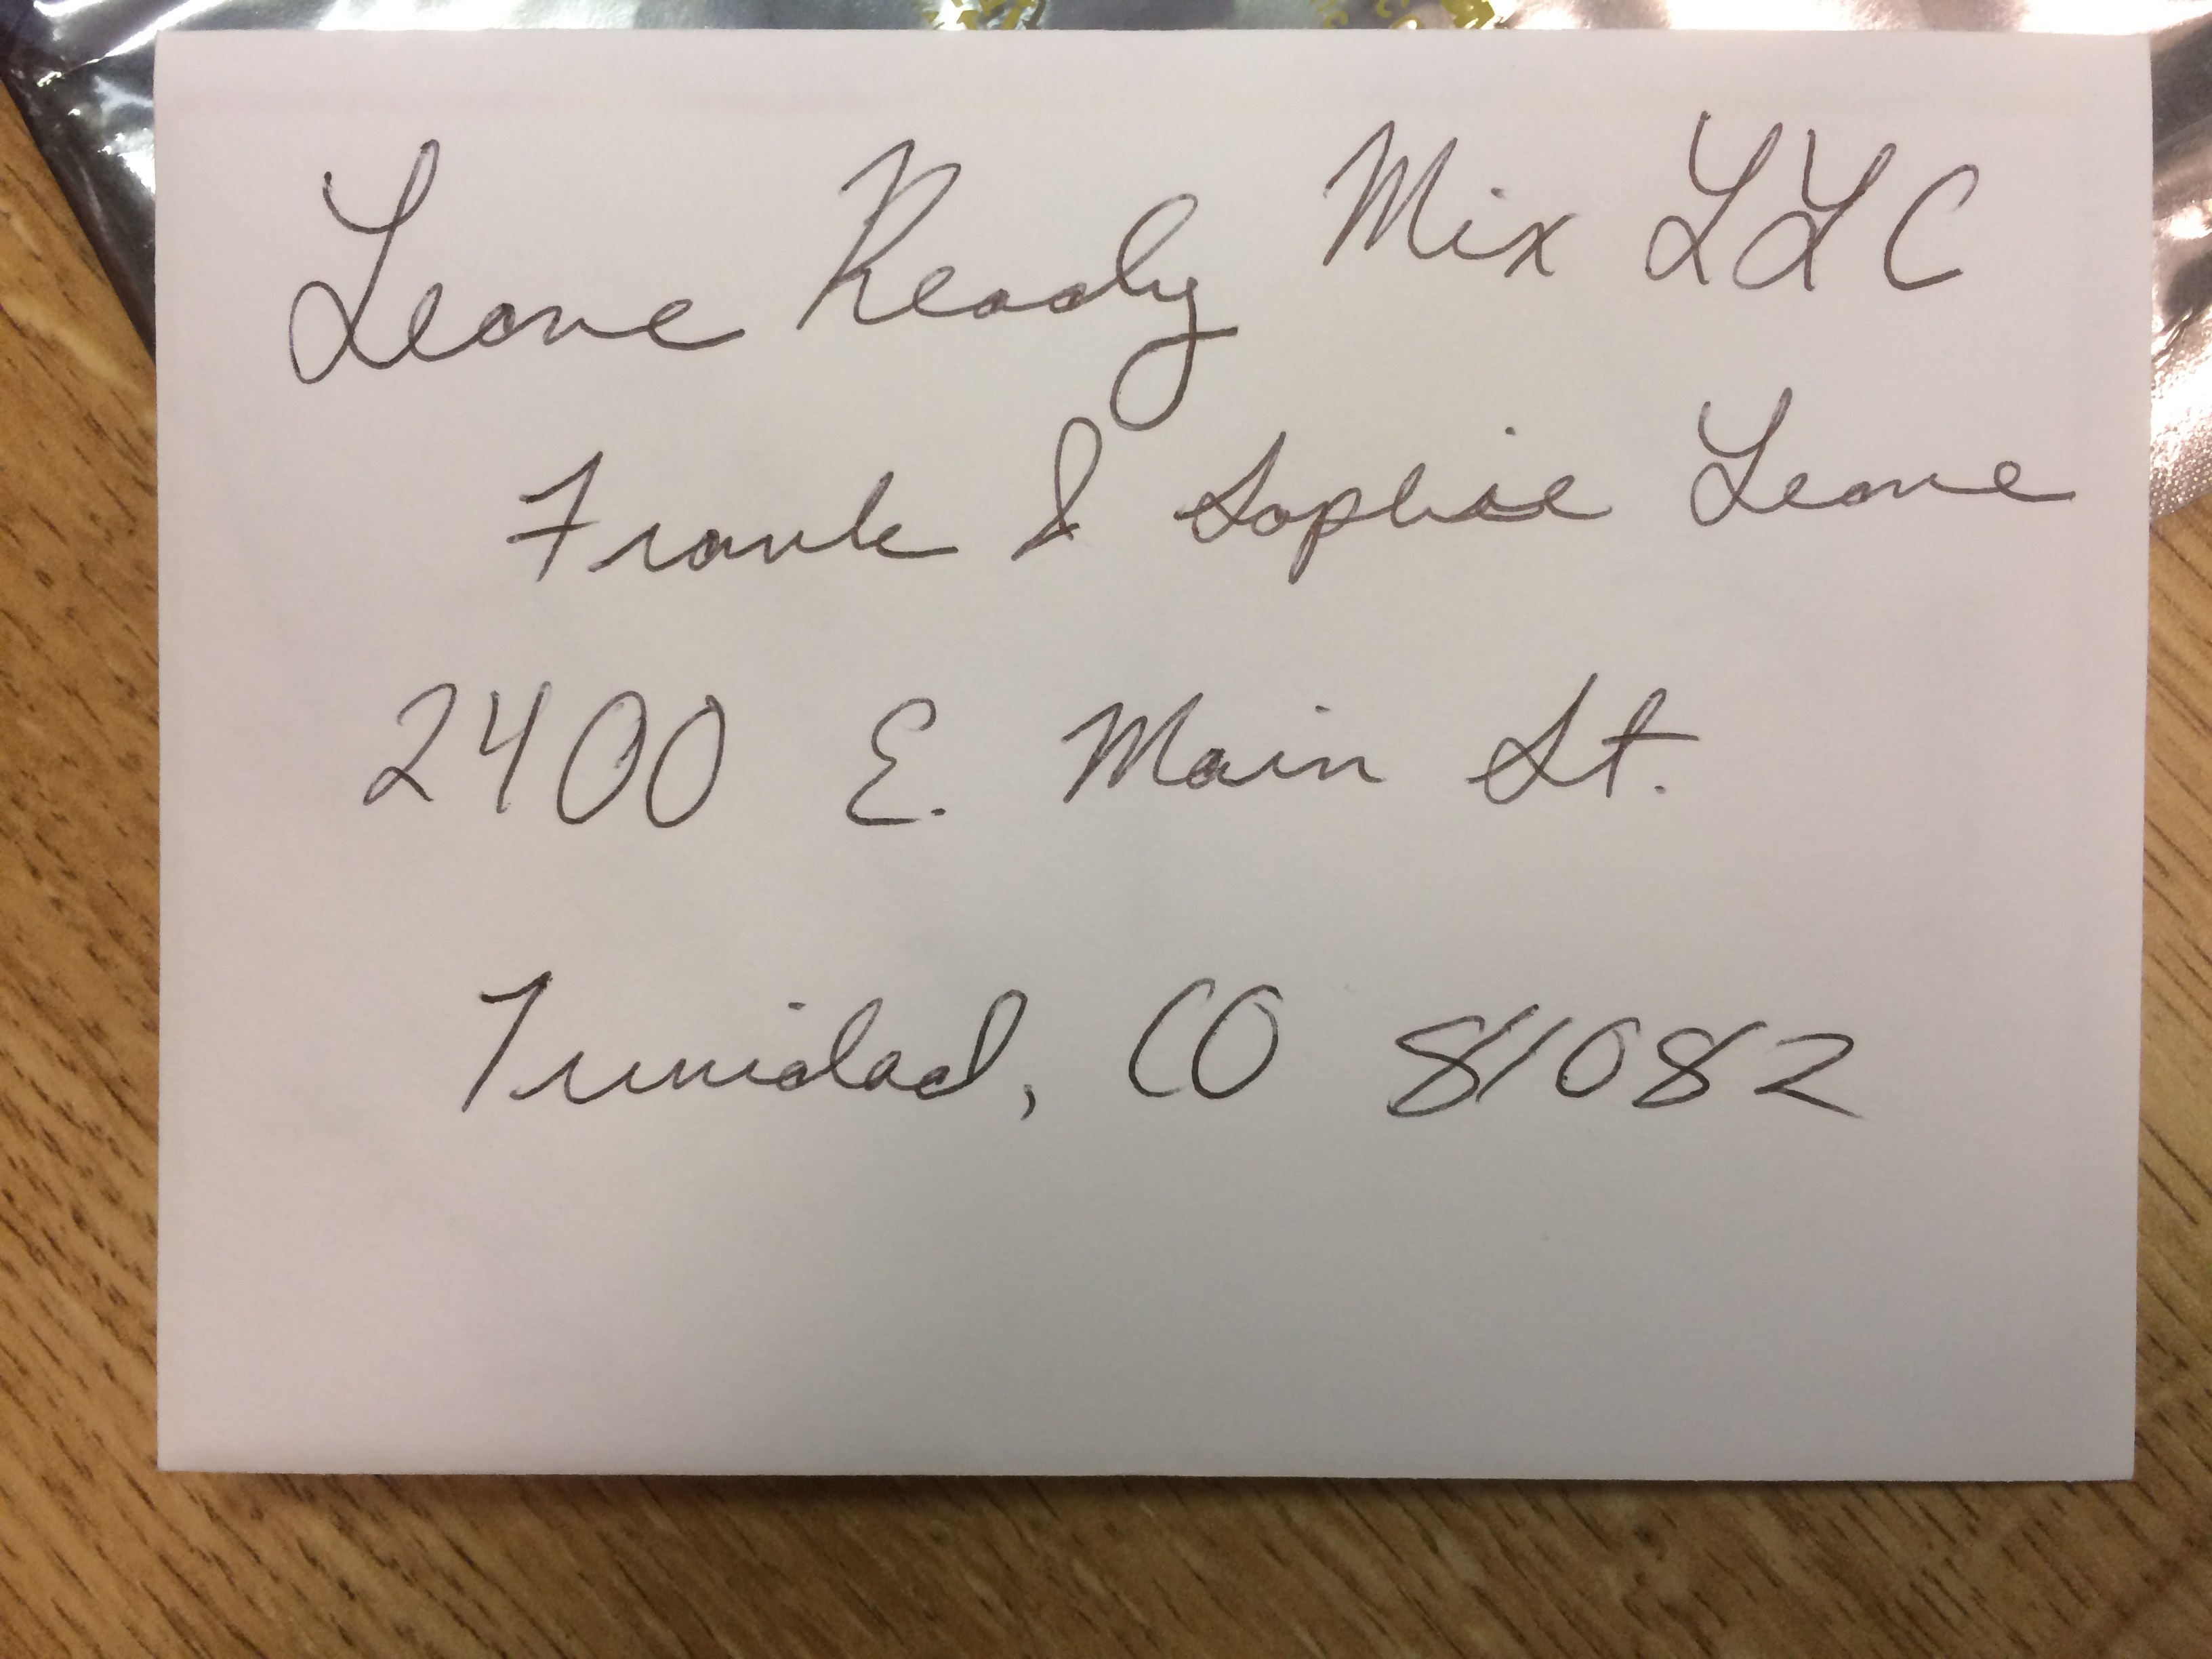 Leone Ready Mix LLC
Frank & Sophie Leone
2400 E. Main St.
Trinidad, CO 81082